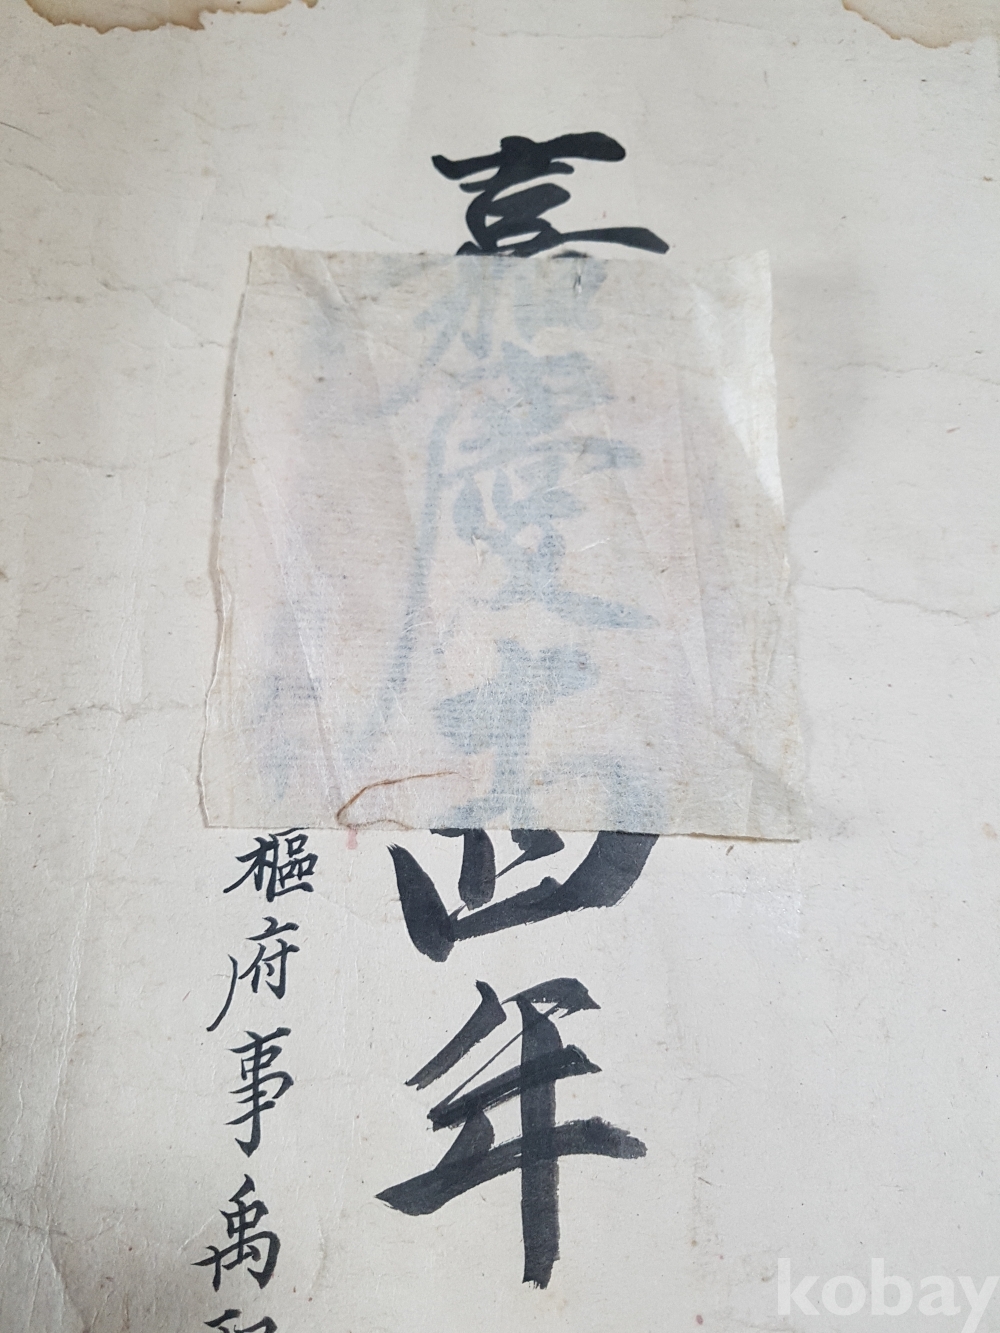 嘉慶十四年
樞府事禹
kobay